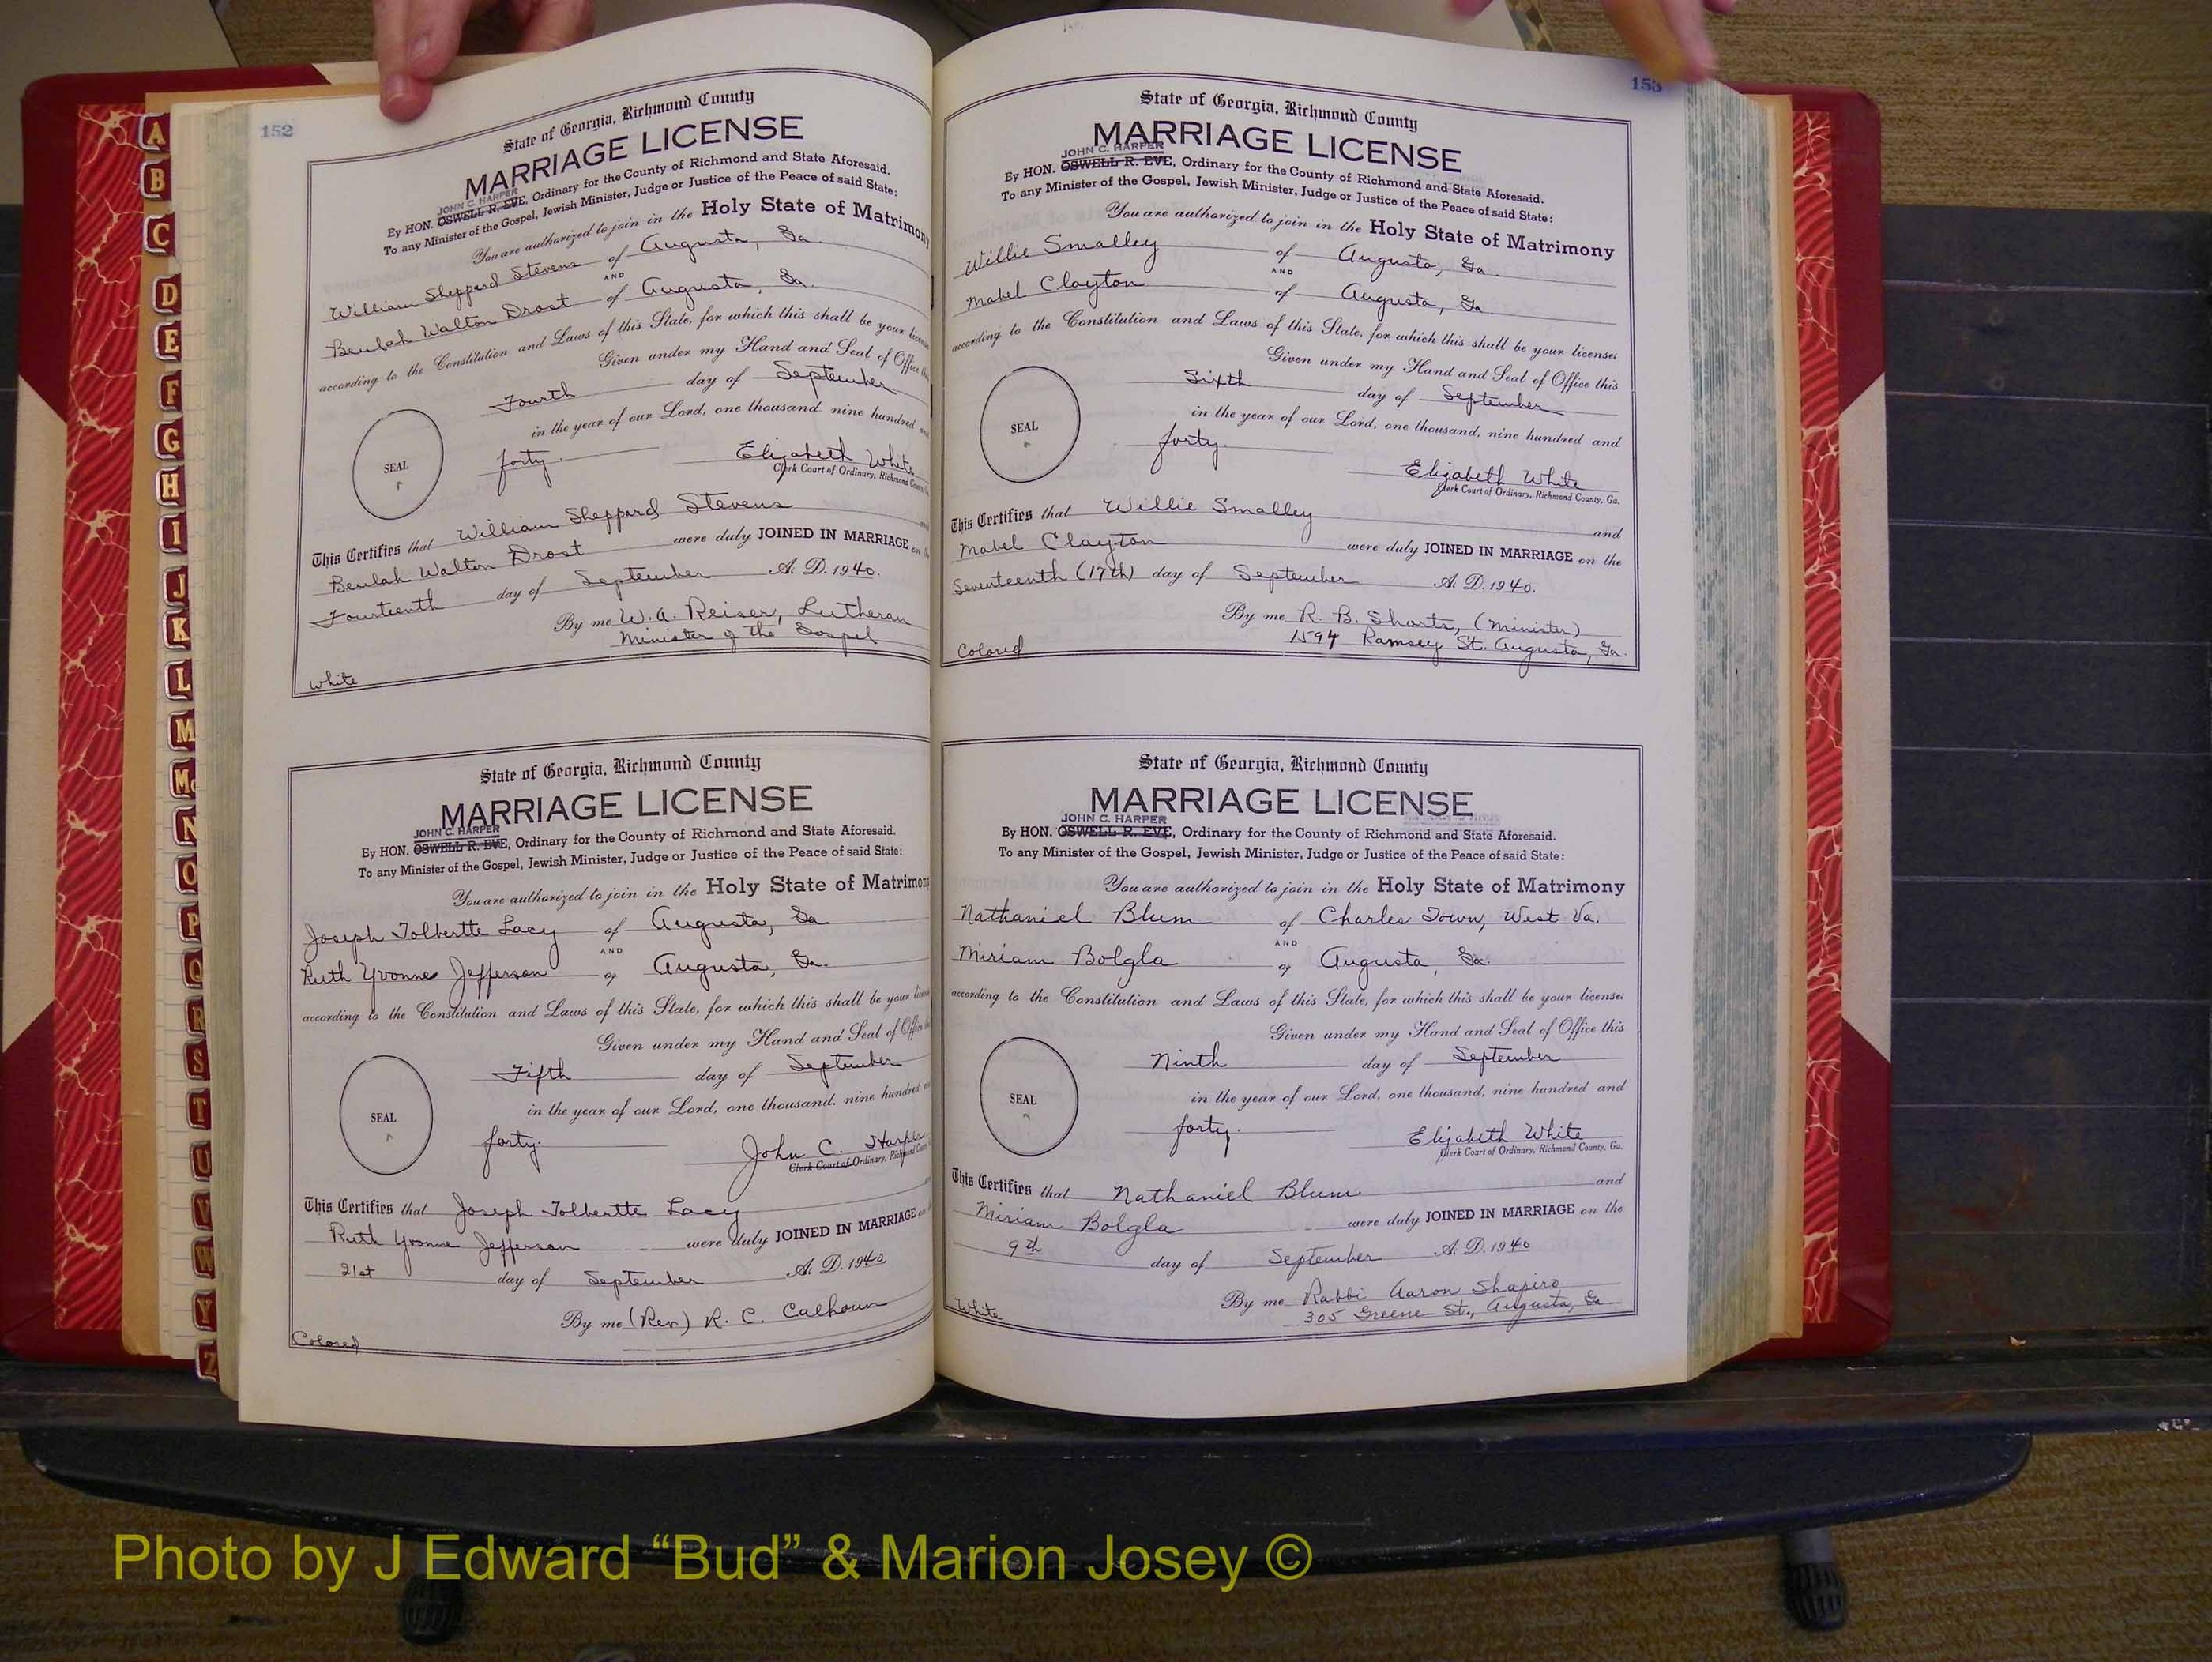 A
B
C
D
E
F
G
H
I
J
K
L
M
Mc
N
O
P
Q
R
S
T
U
V
W
Y
Z
152
State of Georgia, Richmond County
MARRIAGE LICENSE
JOHN C. HARPER
By HON. OSWELL R. EVE, Ordinary for the County of Richmond and State Aforesaid.
To any Minister of the Gospel, Jewish Minister, Judge or Justice of the Peace of said State:
You are authorized to join in the Holy State of Matrimony
William Sheppard Stevens of Augusta, Ga.
AND
Beulah Walton Drost of Augusta, Ga.
according to the Constitution and Laws of this State, for which this shall be your
Given under my Hand and Seal of Office
Fourth day of September
in the year of our Lord, one thousand, nine hundred
SEAL
forty. Elizabeth White
Clerk Court of Ordinary, Richmond
This Certifies that William Sheppard Stevens
Beulah Walton Drost were duly JOINED IN MARRIAGE on
Fourteenth day of September A. D. 1940.
By me W. A. Reiser, Lutheran
Minister of the Gospel
White
State of Georgia, Richmond County
MARRIAGE LICENSE
JOHN C. HARPER
By HON. OSWELL R. EVE, Ordinary for the County of Richmond and State Aforesaid.
To any Minister of the Gospel, Jewish Minister, Judge or Justice of the Peace of said State:
You are authorized to join in the Holy State of Matrimony
Joseph Tolbertte Lacy of Augusta, Ga.
AND
Ruth Yvonne Jefferson of Augusta, Ga.
according to the Constitution and Laws of this State, for which this shall be your
Given under my Hand and Seal of Office
Fifth day of September
in the year of our Lord, one thousand, nine hundred
SEAL
forty. John C. Harper
Clerk Court of Ordinary, Richmond
This Certifies that Joseph Tolbertte Lacy
Ruth Yvonne Jefferson were duly JOINED IN MARRIAGE
21st day of September A. D. 1940.
By me (Rev) R. C. Calhoun
Colored
153
State of Georgia, Richmond County
MARRIAGE LICENSE
JOHN C. HARPER
By HON. OSWELL R. EVE, Ordinary for the County of Richmond and State Aforesaid.
To any Minister of the Gospel, Jewish Minister, Judge or Justice of the Peace of said State:
You are authorized to join in the Holy State of Matrimony
Willie Smalley of Augusta, Ga.
AND
Mabel Clayton of Augusta, Ga.
according to the Constitution and Laws of this State, for which this shall be your license:
Given under my Hand and Seal of Office this
Sixth day of September
in the year of our Lord, one thousand, nine hundred and
SEAL
forty. Elizabeth White
Clerk Court of Ordinary, Richmond County, Ga.
This Certifies that Willie Smalley and
Mabel Clayton were duly JOINED IN MARRIAGE on the
Seventeenth (17th) day of September A. D. 1940.
By me R. B. Shorts, (Minister)
1594 Ramsey St. Augusta, Ga.
Colored
State of Georgia, Richmond County
MARRIAGE LICENSE
JOHN C. HARPER
By HON. OSWELL R. EVE, Ordinary for the County of Richmond and State Aforesaid.
To any Minister of the Gospel, Jewish Minister, Judge or Justice of the Peace of said State:
You are authorized to join in the Holy State of Matrimony
Nathaniel Blum of Charles Town, West Va.
AND
Miriam Bolgla of Augusta, Ga.
according to the Constitution and Laws of this State, for which this shall be your license:
Given under my Hand and Seal of Office this
Ninth day of September
in the year of our Lord, one thousand, nine hundred and
SEAL
forty. Elizabeth White
Clerk Court of Ordinary, Richmond County, Ga.
This Certifies that Nathaniel Blum and
Miriam Bolgla were duly JOINED IN MARRIAGE on the
9th day of September A. D. 1940
By me Rabbi Aaron Shapiro
305 Greene St., Augusta, Ga.
White
Photo by J Edward “Bud” & Marion Josey ©